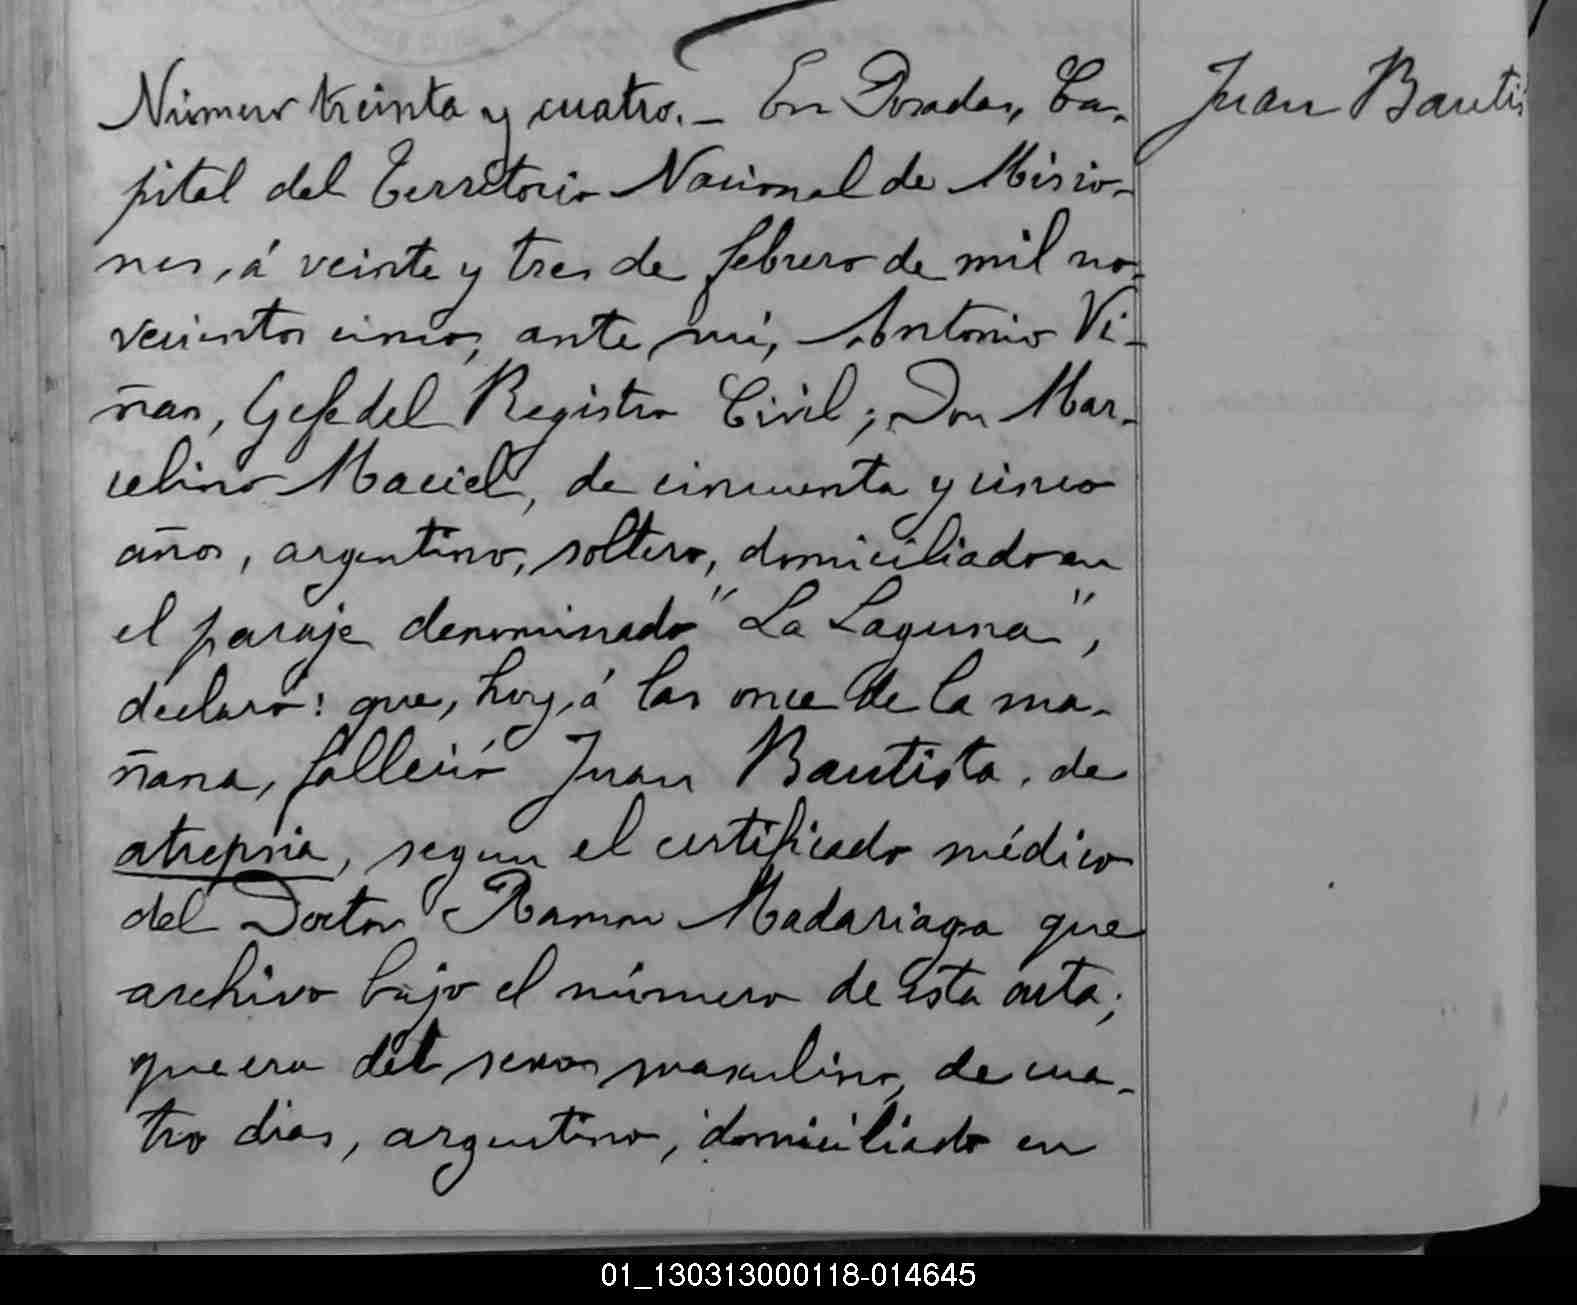 Número treinta y cuatro. _ En Posadas, Ca-
pital del Territorio Nacional de Misio-
nes, á veinte y tres de febrero de mil no-
vecientos cinco, ante mí, Antonio Vi-
ñas, Gefe del Registro Civil; Don Mar-
celino Maciel, de cincuenta y cinco
años, argentino, soltero, domiciliado en
el paraje denominado "La Laguna",
declaró: que, hoy, á las once de la ma-
ñana, falleció Juan Bautista, de
atrepsia, segun el certificado médico
del Doctor Ramon Madariaga que
archivo bajo el número de esta acta;
que era del sexo masculino, de cua-
tro dias, argentino, domiciliado en
Juan Bautis
01_130313000118-014645